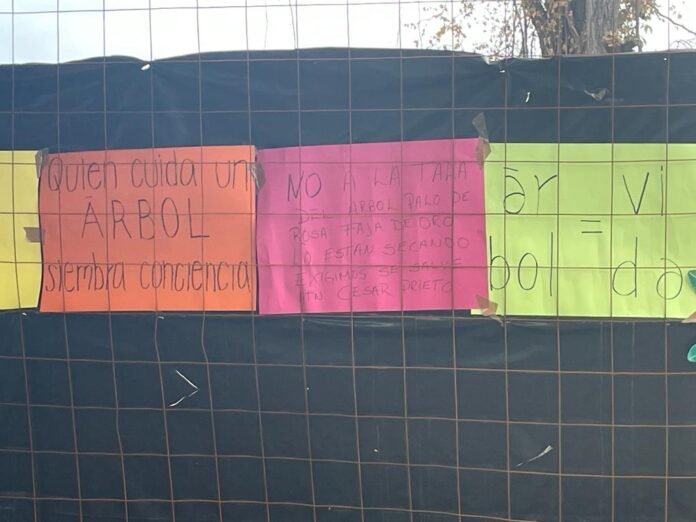 Quien cuida un
ÁRBOL
siembra conciencia
NO A LA TALA
DEL ARBOL PALO DE
ROSA FAJA DE ORO
LO ESTAN SECANDO
EXIGIMOS SE SALVE
ATN CESAR PRIETO
ár = vi
bol da